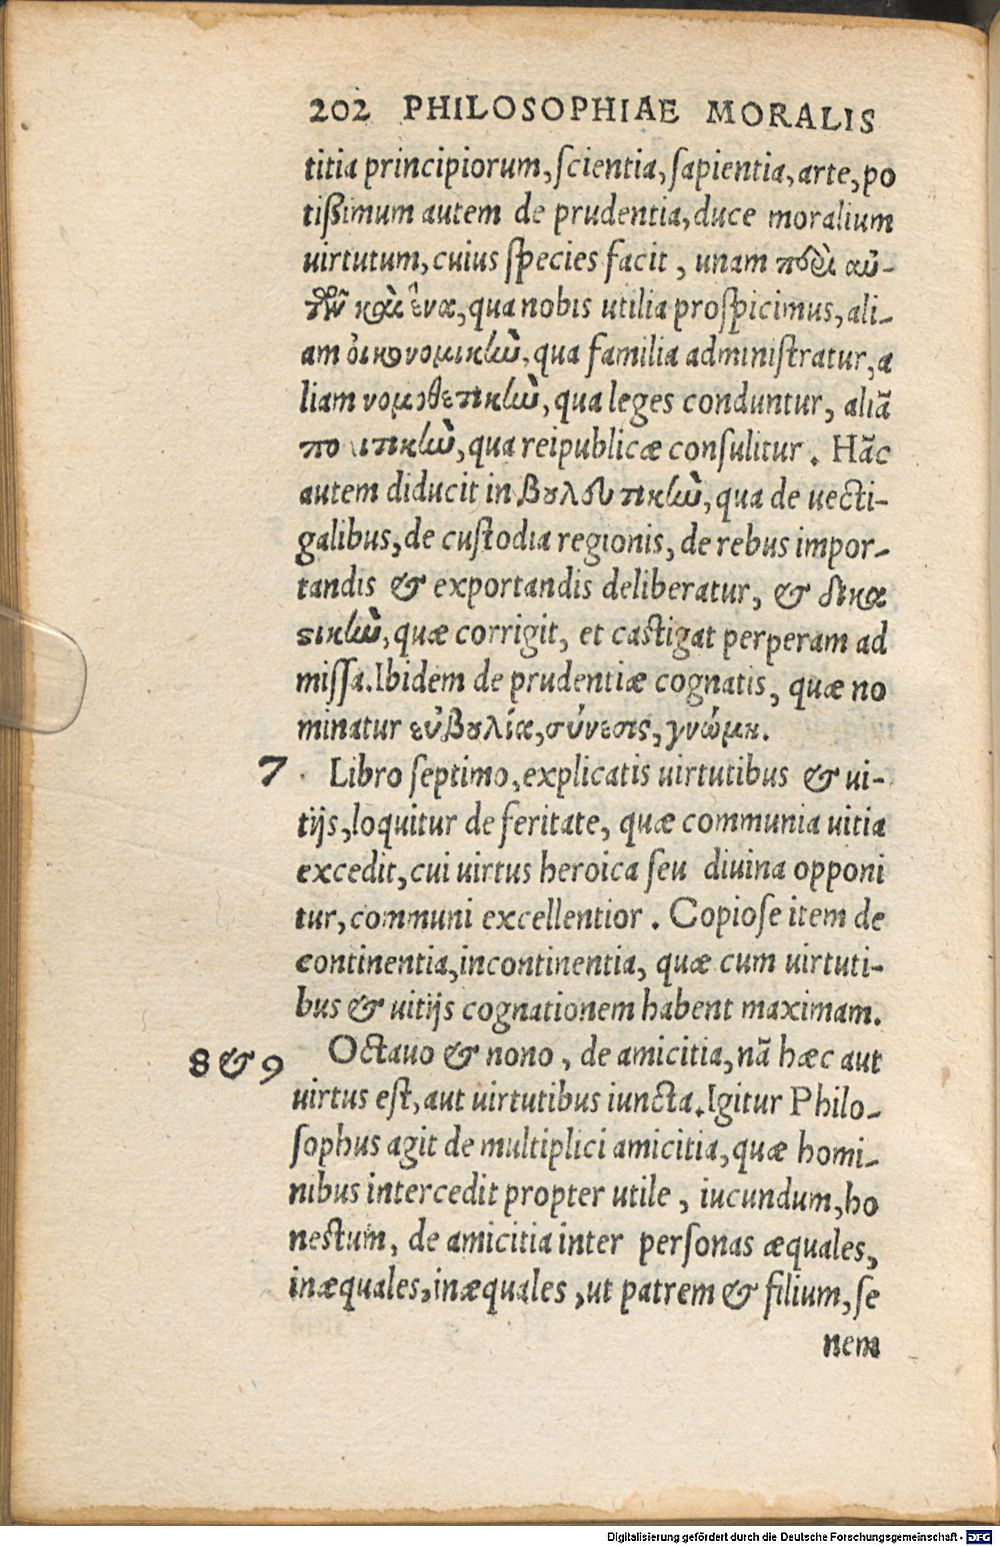 202 PHILOSOPHIAE MORALIS
titia principiorum, scientia, sapientia, arte, po
tißimum autem de prudentia, duce moralium
uirtutum, cuius species facit, unam περὶ αὐ-
τὸν καὶ ἕνα, qua nobis utilia prospicimus, ali-
am οἰκονομικὼ, qua familia administratur, a
liam νομοθετικὼ, qua leges conduntur, aliã
πο ιτικὼ, qua reipublicæ consulitur. Hãc
autem diducit in βουλευτικὼ, qua de uecti-
galibus, de custodia regionis, de rebus impor-
tandis & exportandis deliberatur, & δικα
τικὼ, quæ corrigit, et castigat perperam ad
missa. Ibidem de prudentiæ cognatis, quæ no
minatur εὐβουλία, σύνεσις, γνώμη.
7 Libro septimo, explicatis uirtutibus & ui-
tijs, loquitur de feritate, quæ communia uitia
excedit, cui uirtus heroica seu diuina opponi
tur, communi excellentior. Copiose item de
continentia, incontinentia, quæ cum uirtuti-
bus & uitijs cognationem habent maximam.
8 & 9 Octauo & nono, de amicitia, nã hæc aut
uirtus est, aut uirtutibus iuncta. Igitur Philo-
sophus agit de multiplici amicitia, quæ homi-
nibus intercedit propter utile, iucundum, ho
nestum, de amicitia inter personas æquales,
inæquales, inæquales, ut patrem & filium, se
nem
Digitalisierung gefördert durch die Deutsche Forschungsgemeinschaft - DFG